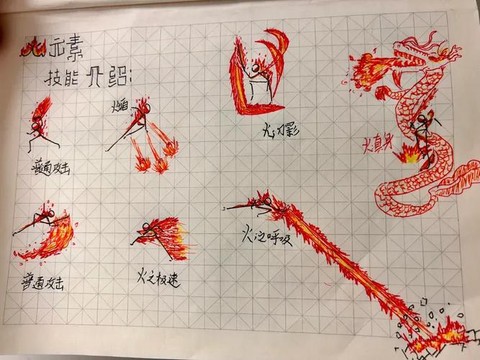 火元素
技能介绍:
火焰
普通攻击
火真身
普通攻击
火之极速
火之呼吸